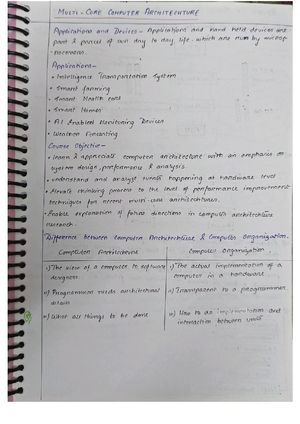 MULTI-CORE COMPUTER ARCHITECTURE
Applications and Devices - Applications and hand held devices are
part & parcel of our day to day life. which are run by microp-
rocessors.
Applications-
• Intelligence Transportation System
• Smart farming
• Smart Health care
• Smart Homes
• AI Enabled Monitoring Devices
• Weather Forecasting
Course Objective-
• learn & appreciate computer architecture with an emphasis on
system design, performance & analysis.
• understand and analyze events happening at hardware level
• Elevate thinking process to the level of performance improvement
techniques for recent multi-core architectures.
• Enable exploration of future directions in computer architecture
research.
Difference between Computer Architecture & Computer Organization.
Computer Architecture
Computer Organization
i) The view of a computer to software
designers.
i) The actual implementation of a
computer in a hardware.
ii) Programmer needs architectural
details
ii) Transparent to a programmer.
iii) What all things to be done
iii) How to do implementation and
interaction between units